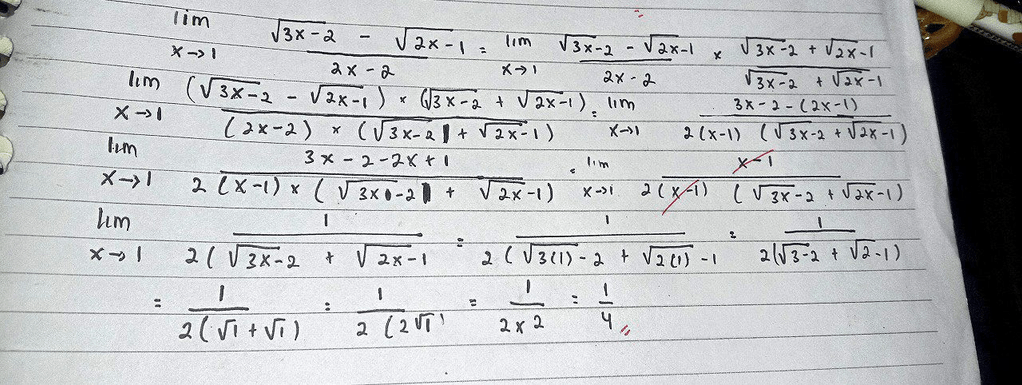 lim x→1 (√3x-2 - √2x-1)/(2x-2) = lim x→1 (√3x-2 - √2x-1)/(2x-2) × (√3x-2 + √2x-1)/(√3x-2 + √2x-1)
lim x→1 ((√3x-2 - √2x-1) × (√3x-2 + √2x-1))/((2x-2) × (√3x-2 + √2x-1)) = lim x→1 (3x-2-(2x-1))/(2(x-1) (√3x-2 + √2x-1))
lim x→1 (3x-2-2x+1)/(2(x-1) × (√3x-2 + √2x-1)) = lim x→1 (x-1)/(2(x-1) (√3x-2 + √2x-1))
lim x→1 1/(2(√3x-2 + √2x-1) = 1/(2(√3(1)-2 + √2(1)-1) = 1/(2(√3-2 + √2-1))
= 1/(2(√1 + √1)) = 1/(2(2√1) = 1/(2×2) = 1/4 //